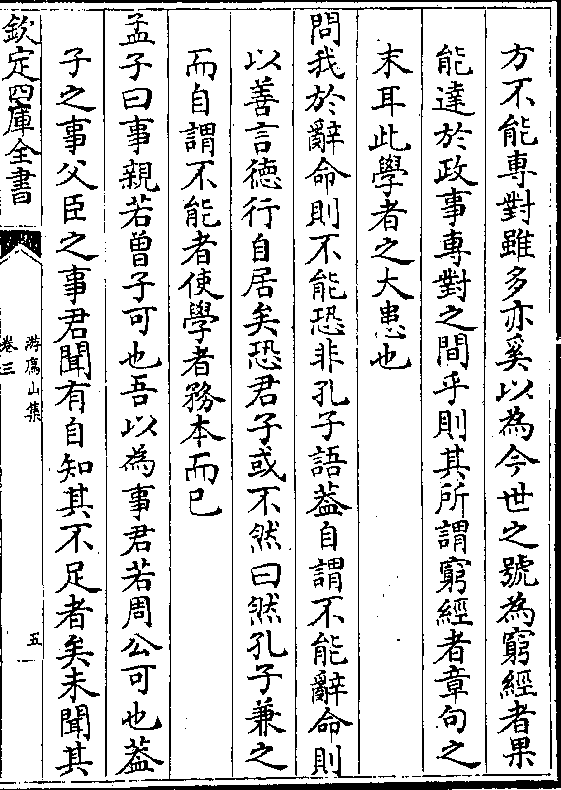 方不能專對雖多亦奚以為今世之號為窮經者果
能達於政事專對之間乎則其所謂窮經者章句之
末耳此學者之大患也
問我於辭命則不能恐非孔子語葢自謂不能辭命則
以善言德行自居矣恐君子或不然曰然孔子兼之
而自謂不能者使學者務本而已
孟子曰事親若曾子可也吾以為事君若周公可也葢
子之事父臣之事君聞有自知其不足者矣未聞其
欽定四庫全書
游廌山集
卷三
五